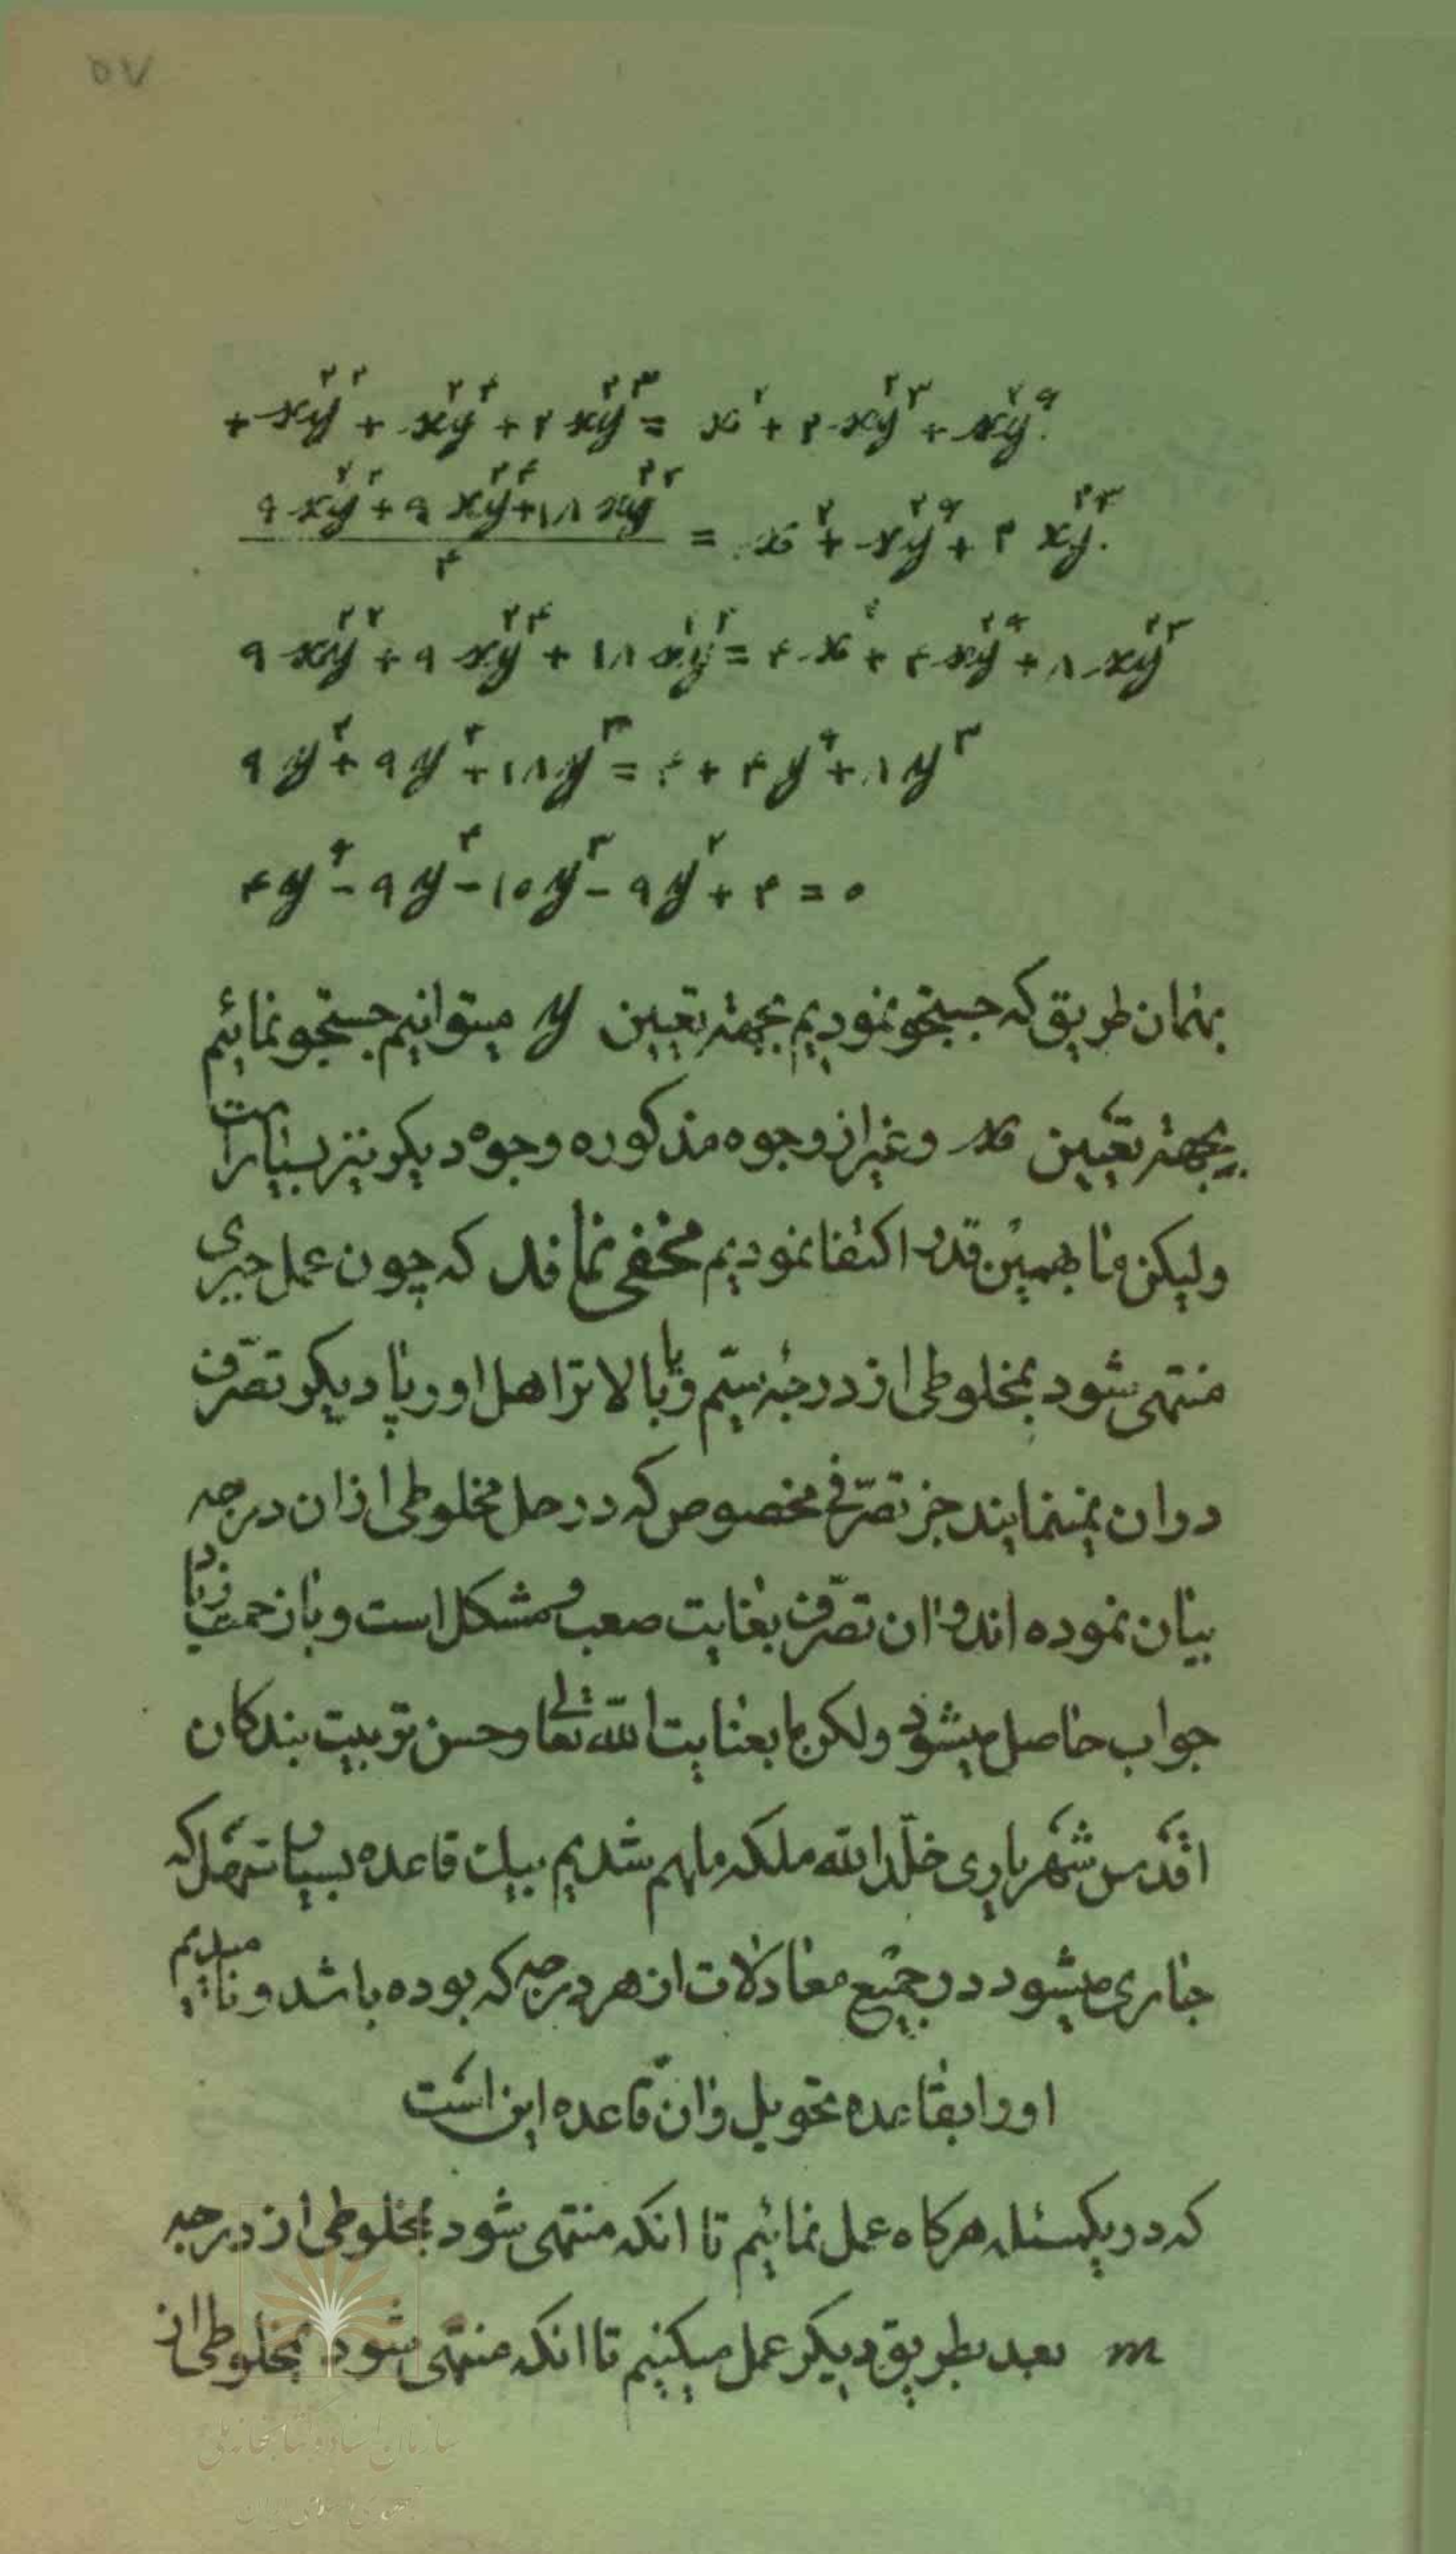 ۵۷
+ xy^۲^۲ + xy^۲^۴ + ۲xy^۲^۳ = x^۲ + ۲xy^۲^۳ + xy^۲^۶
(۹xy^۲^۲ + ۹xy^۲^۴ + ۱۸xy^۲^۳) / ۴ = x^۲ + xy^۲^۶ + ۲xy^۲^۳
۹xy^۲^۲ + ۹xy^۲^۴ + ۱۸xy^۲^۳ = ۴x^۲ + ۴xy^۲^۶ + ۸xy^۲^۳
۹y^۲ + ۹y^۴ + ۱۸y^۳ = ۴ + ۴y^۶ + ۸y^۳
۴y^۶ - ۹y^۴ - ۱۰y^۳ - ۹y^۲ + ۴ = ۰
بهمان طریق که جستجو نمودیم بجهته تعیین y میتوانیم جستجو نمائیم
بجهته تعیین x وغیر از وجوه مذکوره وجوه دیکر نیز بسیار است
ولیکن ما بهمین قدر اکتفا نمودیم مخفی نماند که چون عمل جبری
منتهی شود بمخلوطی از درجهٔ سیّم و یا بالاتر اهل اورپا دیکر تصرّف
دران نمینمایند جز تصرّفی مخصوص که در حل مخلوطی ازان درجه
بیان نموده اند و ان تصرّف بغایت صعب و مشکل است و باز حمت زیاد
جواب حاصل میشود ولکن ما بعنایت الله تعالی و حسن تربیت بندکان
اقدس شهریاری خلّد الله ملکه ملهم شدیم بیک قاعده بسیار سهل که
جاری میشود در جمیع معادلات از هر درجه که بوده باشد و نامیدیم
اورا بقاعده تحویل و ان قاعده این است
که در یکمسئله هرکاه عمل نمائیم تا انکه منتهی شود بمخلوطی از درجه
m بعد بطریق دیکر عمل میکنیم تا انکه منتهی شود بمخلوطی از
سازمان اسناد و کتابخانه ملی
جمهوری اسلامی ایران